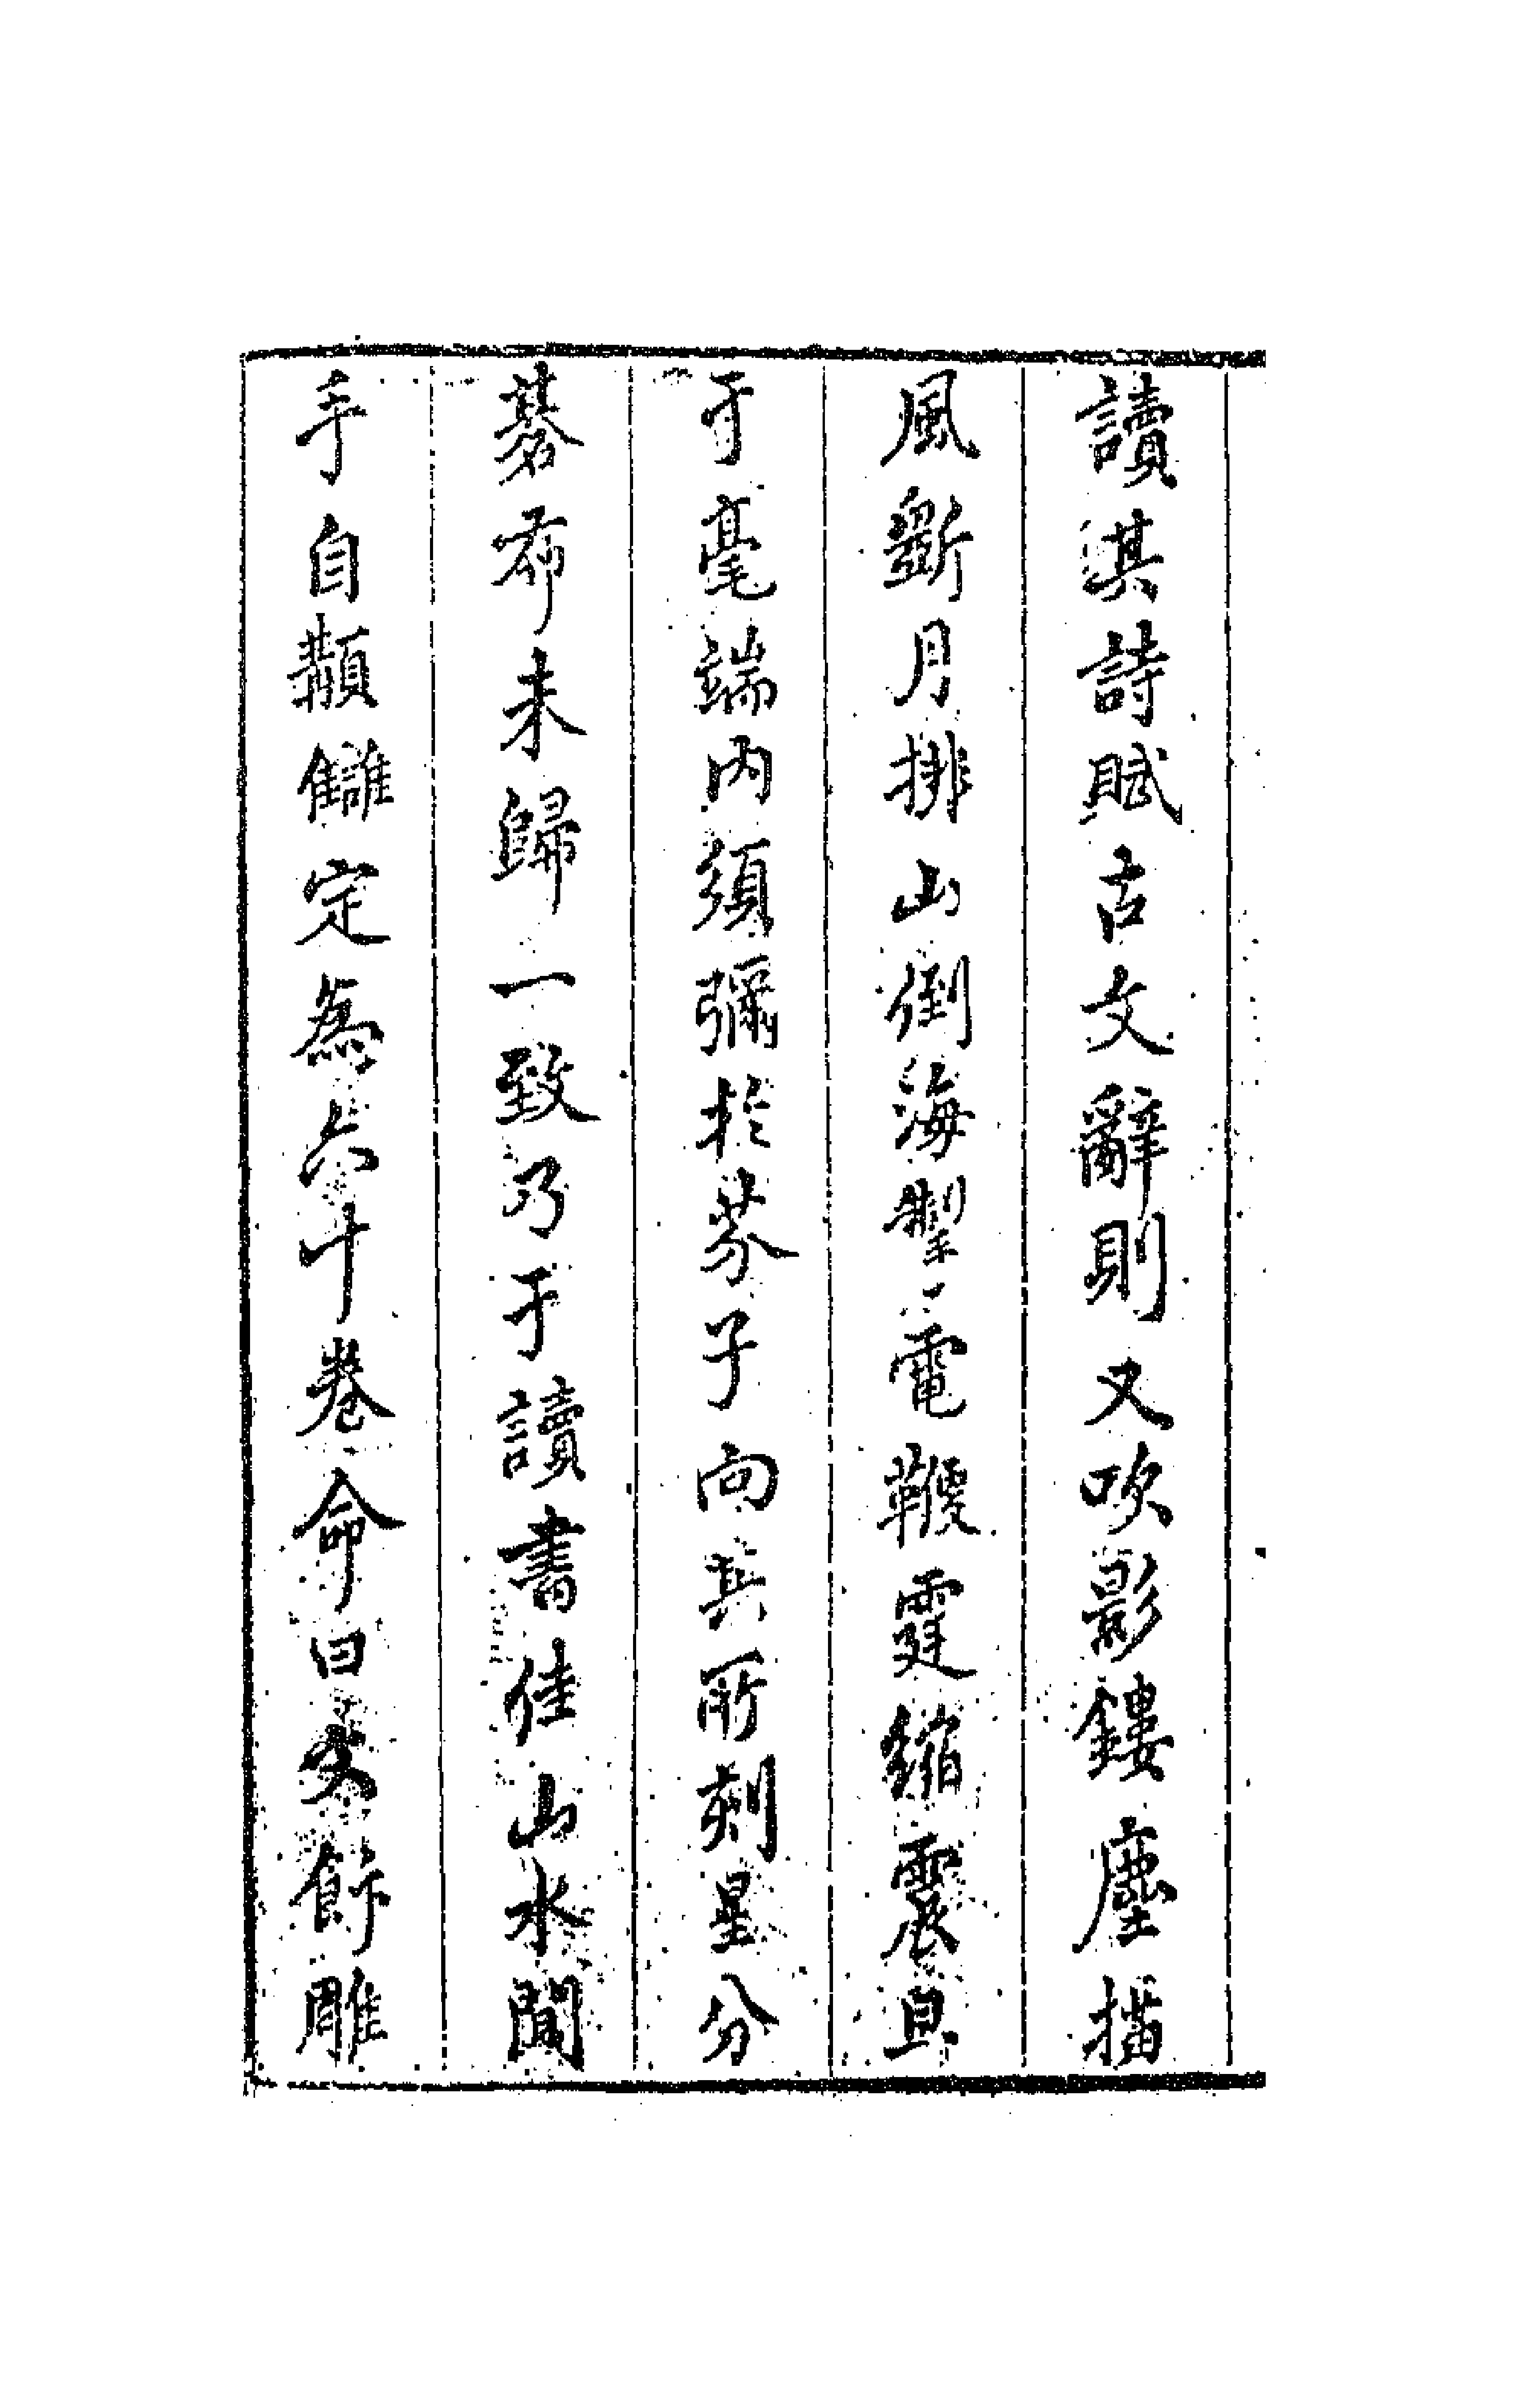 讀其詩賦古文辭則又吹影鏤塵描
風斵月排山倒海掣電鞭霆縮震旦
于毫端內須彌於芥子向其所刻星分
碁布未歸一致乃于讀書佳山水間
手自纇讎定為六十卷命曰文飾雕